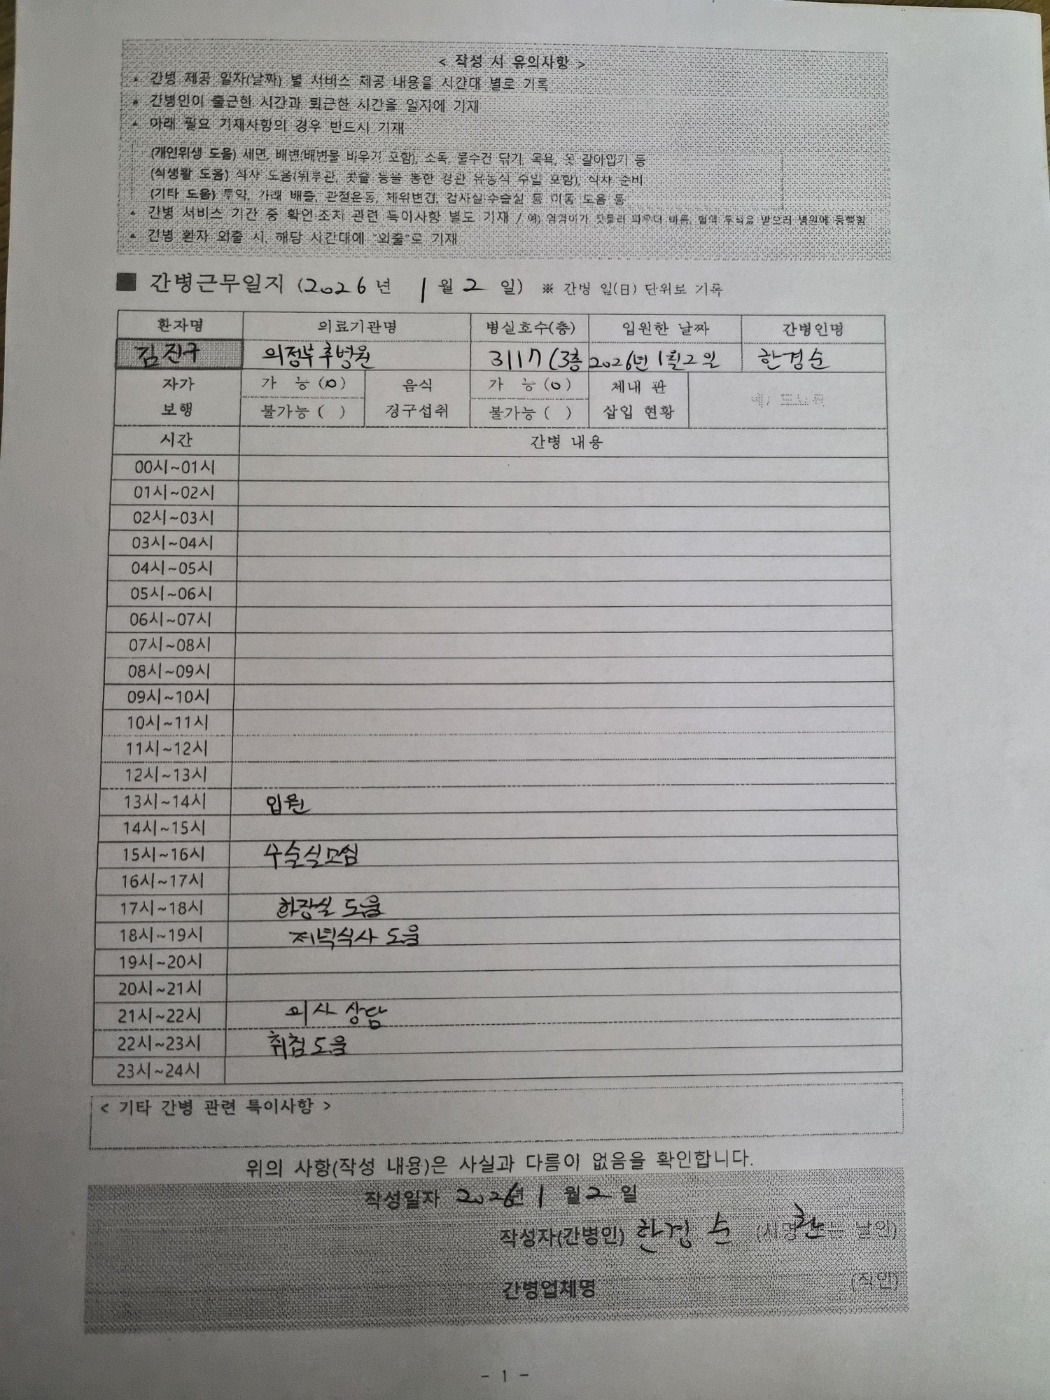 < 작성 시 유의사항 >
• 간병 제공 일자(날짜) 별 서비스 제공 내용을 시간대 별로 기록
• 간병인이 출근한 시간과 퇴근한 시간을 일지에 기재
• 아래 필요 기재사항의 경우 반드시 기재
(개인위생 도움) 세면, 배변(배변물 비우기 포함), 소독, 물수건 닦기, 목욕, 옷 갈아입기 등
(식생활 도움) 식사 도움(위루관, 콧줄 등을 통한 경관 유동식 주입 포함), 식사 준비
(기타 도움) 투약, 가래 배출, 관절운동, 체위변경, 검사실·수술실 등 이동 도움 등
• 간병 서비스 기간 중 확인·조치 관련 특이사항 별도 기재 / 예)
• 간병 환자 외출 시, 해당 시간대에 "외출"로 기재
■ 간병근무일지 (2026년 1월 2일) ※ 간병 일(日) 단위로 기록
환자명 의료기관명 병실호수(층) 입원한 날짜 간병인명
김진구 의정부 병원 3117 (3층 2026년 1월 2일 한경순
자가 보행 가 능 (o) 불가능 ( ) 음식 경구섭취 가 능 (o) 불가능 ( ) 체내 관 삽입 현황
시간 간병 내용
00시~01시
01시~02시
02시~03시
03시~04시
04시~05시
05시~06시
06시~07시
07시~08시
08시~09시
09시~10시
10시~11시
11시~12시
12시~13시
13시~14시 입원
14시~15시
15시~16시 수술실모심
16시~17시
17시~18시 화장실 도움
18시~19시 저녁식사 도움
19시~20시
20시~21시
21시~22시 의사 상담
22시~23시 취침도움
23시~24시
< 기타 간병 관련 특이사항 >
위의 사항(작성 내용)은 사실과 다름이 없음을 확인합니다.
작성일자 2026년 1월 2일
작성자(간병인) 한경순 (서명 또는 날인)
간병업체명 (직인)
- 1 -